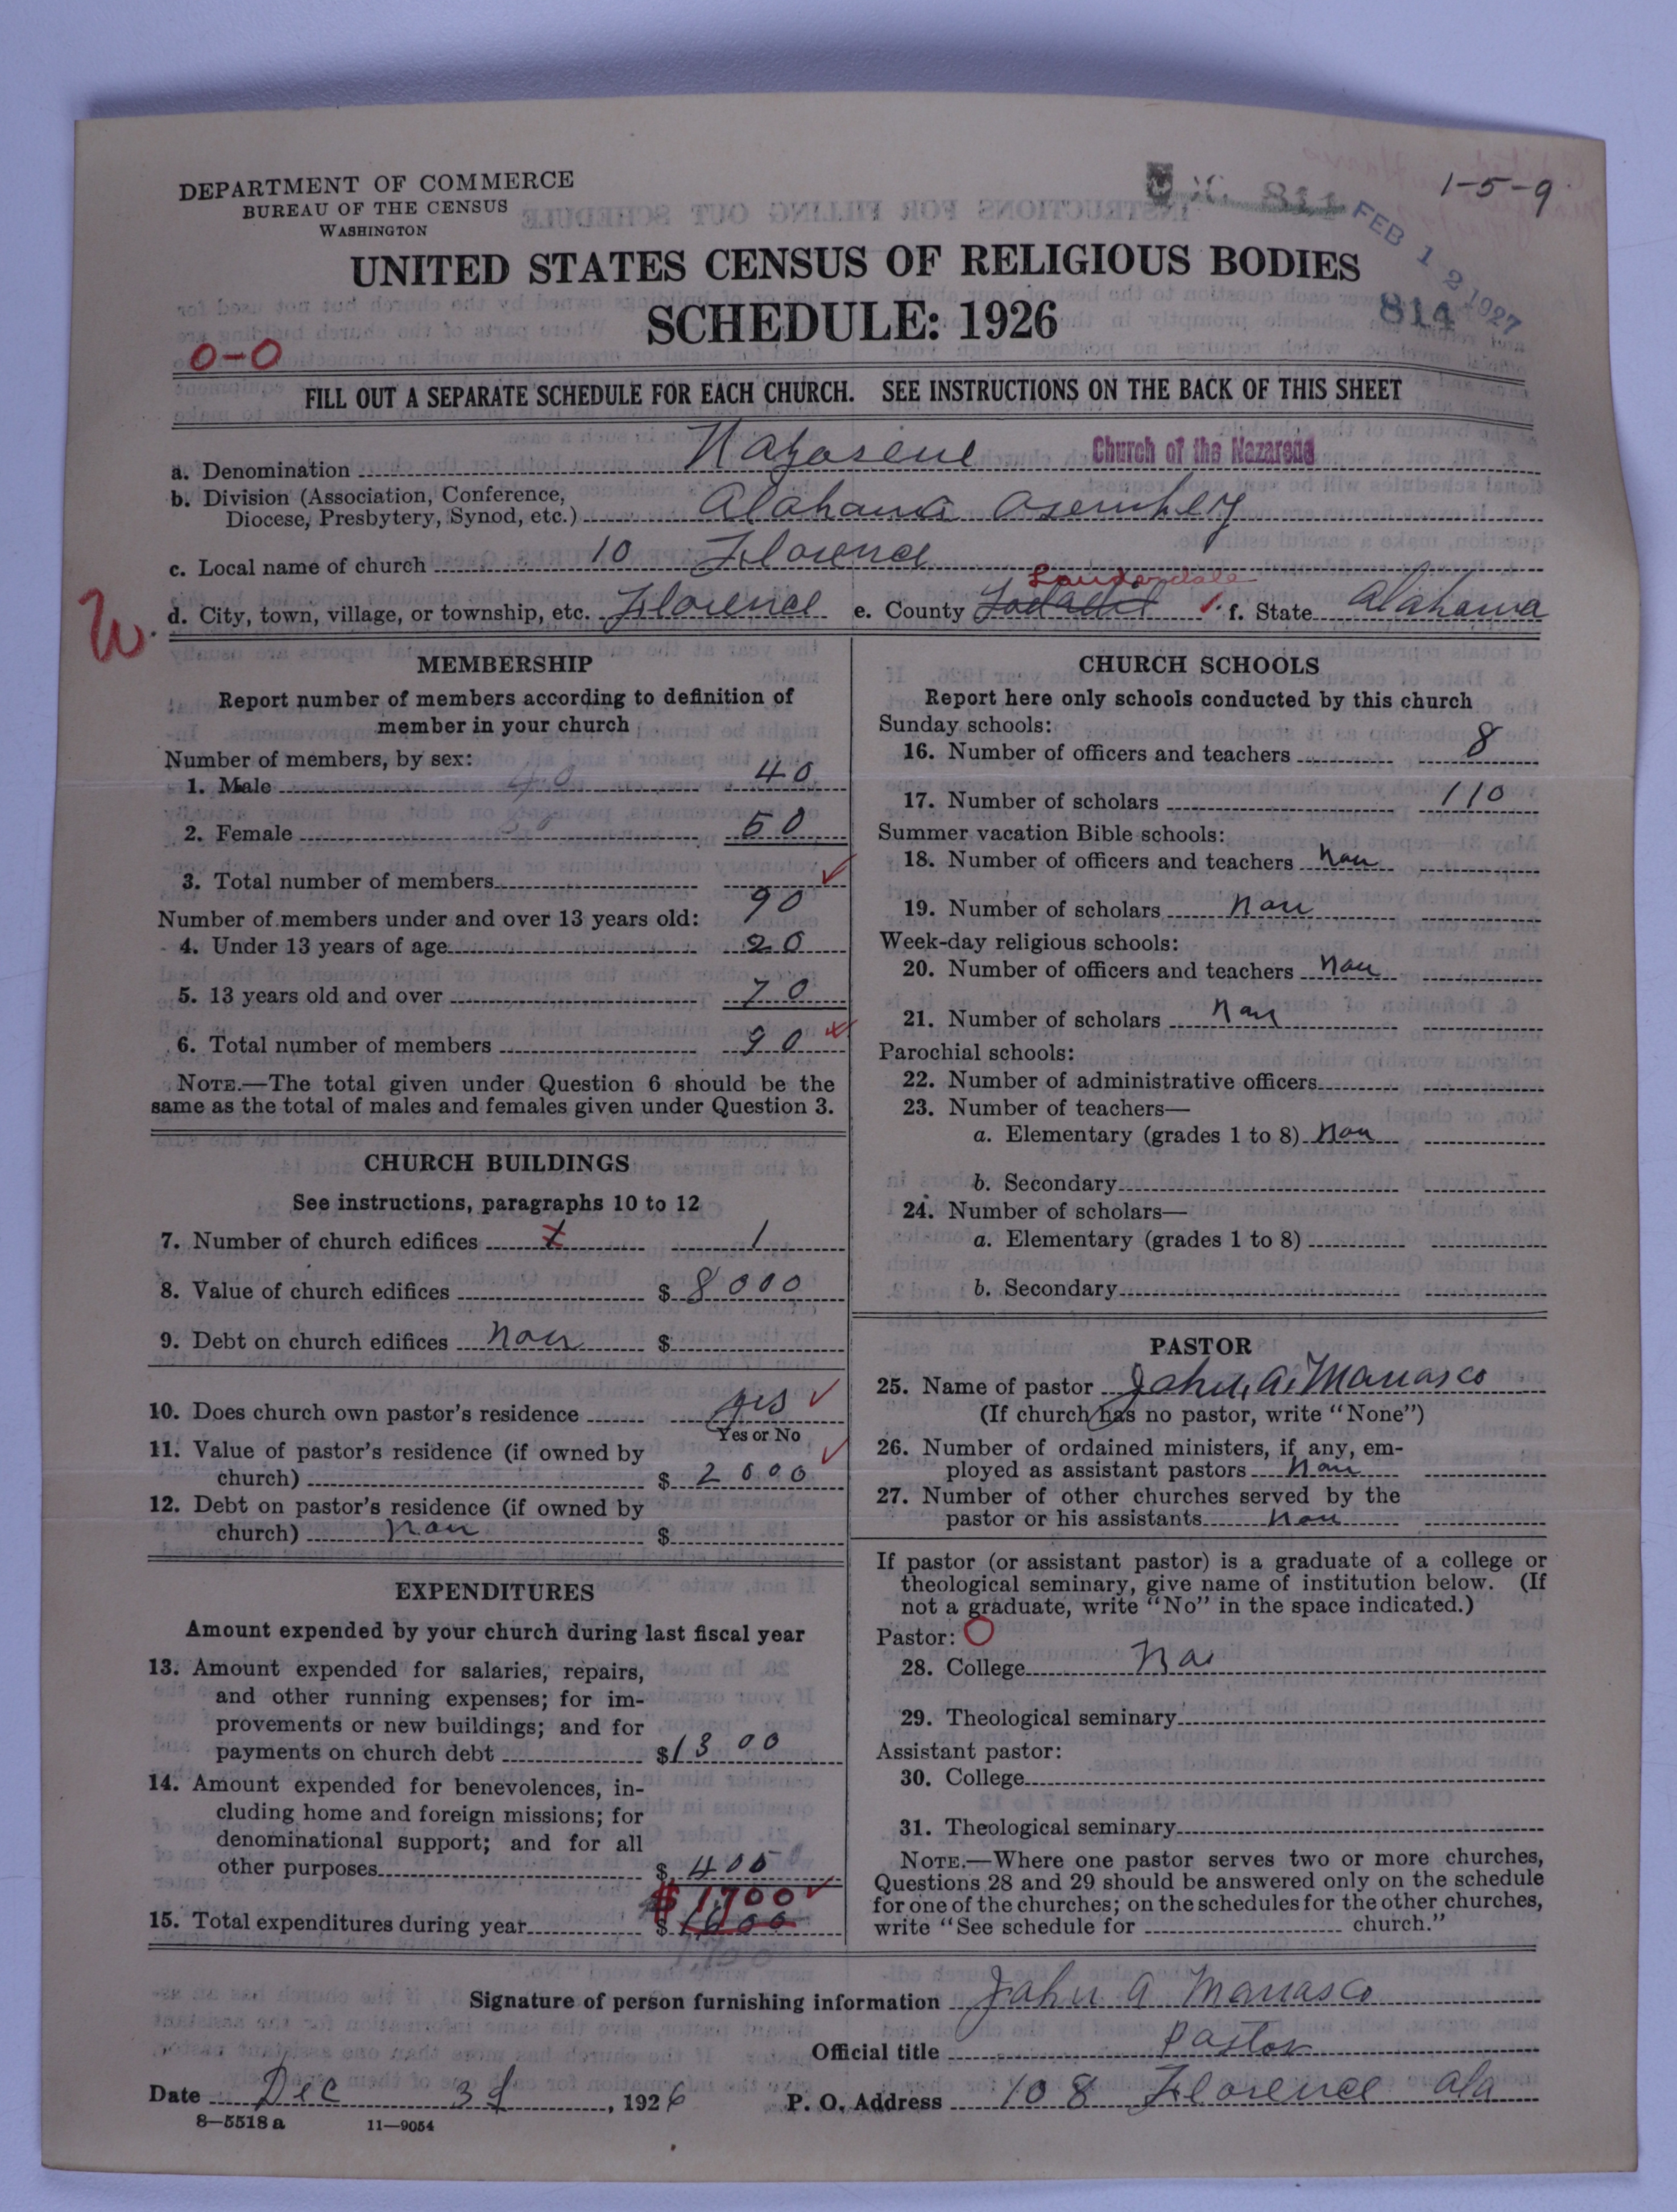 DEPARTMENT OF COMMERCE
BUREAU OF THE CENSUS
WASHINGTON
1-5-9
FEB 12 1927
814
UNITED STATES CENSUS OF RELIGIOUS BODIES
SCHEDULE: 1926
0-0
FILL OUT A SEPARATE SCHEDULE FOR EACH CHURCH. SEE INSTRUCTIONS ON THE BACK OF THIS SHEET
a. Denomination Nazarene Church of the Nazarene
b. Division (Association, Conference,
Diocese, Presbytery, Synod, etc.) Alabama Asembley
c. Local name of church 10 Florence
Lauderdale
W. d. City, town, village, or township, etc. Florence e. County f. State Alabama
MEMBERSHIP
Report number of members according to definition of
member in your church
Number of members, by sex:
1. Male 40 40
2. Female 50 50
3. Total number of members 90
Number of members under and over 13 years old:
4. Under 13 years of age 20
5. 13 years old and over 70
6. Total number of members 90
NOTE.—The total given under Question 6 should be the
same as the total of males and females given under Question 3.
CHURCH BUILDINGS
See instructions, paragraphs 10 to 12
7. Number of church edifices 1 1
8. Value of church edifices $ 8000
9. Debt on church edifices Non $
10. Does church own pastor's residence yes
Yes or No
11. Value of pastor's residence (if owned by
church) $ 2000
12. Debt on pastor's residence (if owned by
church) non $
EXPENDITURES
Amount expended by your church during last fiscal year
13. Amount expended for salaries, repairs,
and other running expenses; for im-
provements or new buildings; and for
payments on church debt $1300
14. Amount expended for benevolences, in-
cluding home and foreign missions; for
denominational support; and for all
other purposes $ 400
$1700
15. Total expenditures during year $ 1600
1700
CHURCH SCHOOLS
Report here only schools conducted by this church
Sunday schools:
16. Number of officers and teachers 8
17. Number of scholars 110
Summer vacation Bible schools:
18. Number of officers and teachers Non
19. Number of scholars Non
Week-day religious schools:
20. Number of officers and teachers Non
21. Number of scholars Non
Parochial schools:
22. Number of administrative officers
23. Number of teachers—
a. Elementary (grades 1 to 8) Non
b. Secondary
24. Number of scholars—
a. Elementary (grades 1 to 8)
b. Secondary
PASTOR
25. Name of pastor John A. Manasco
(If church has no pastor, write "None")
26. Number of ordained ministers, if any, em-
ployed as assistant pastors Non
27. Number of other churches served by the
pastor or his assistants Non
If pastor (or assistant pastor) is a graduate of a college or
theological seminary, give name of institution below. (If
not a graduate, write "No" in the space indicated.)
Pastor: O
28. College No
29. Theological seminary
Assistant pastor:
30. College
31. Theological seminary
NOTE.—Where one pastor serves two or more churches,
Questions 28 and 29 should be answered only on the schedule
for one of the churches; on the schedules for the other churches,
write "See schedule for church."
Signature of person furnishing information John A Manasco
Official title Pastor
Date Dec 31, 1926 P. O. Address 108 Florence Ala
8—5518a 11—9054